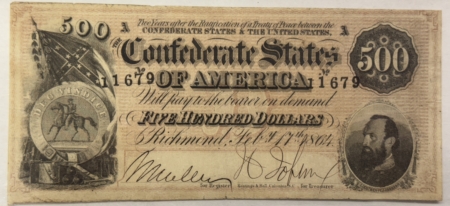 500 A Two Years after the Ratification of a Treaty of Peace between the A
CONFEDERATE STATES & THE UNITED STATES,
the Confederate States 500
No 11679 OF AMERICA No 11679
Will pay to the bearer on demand
FIVE HUNDRED DOLLARS
Richmond, Feby 17th 1864
for Register for Treasurer